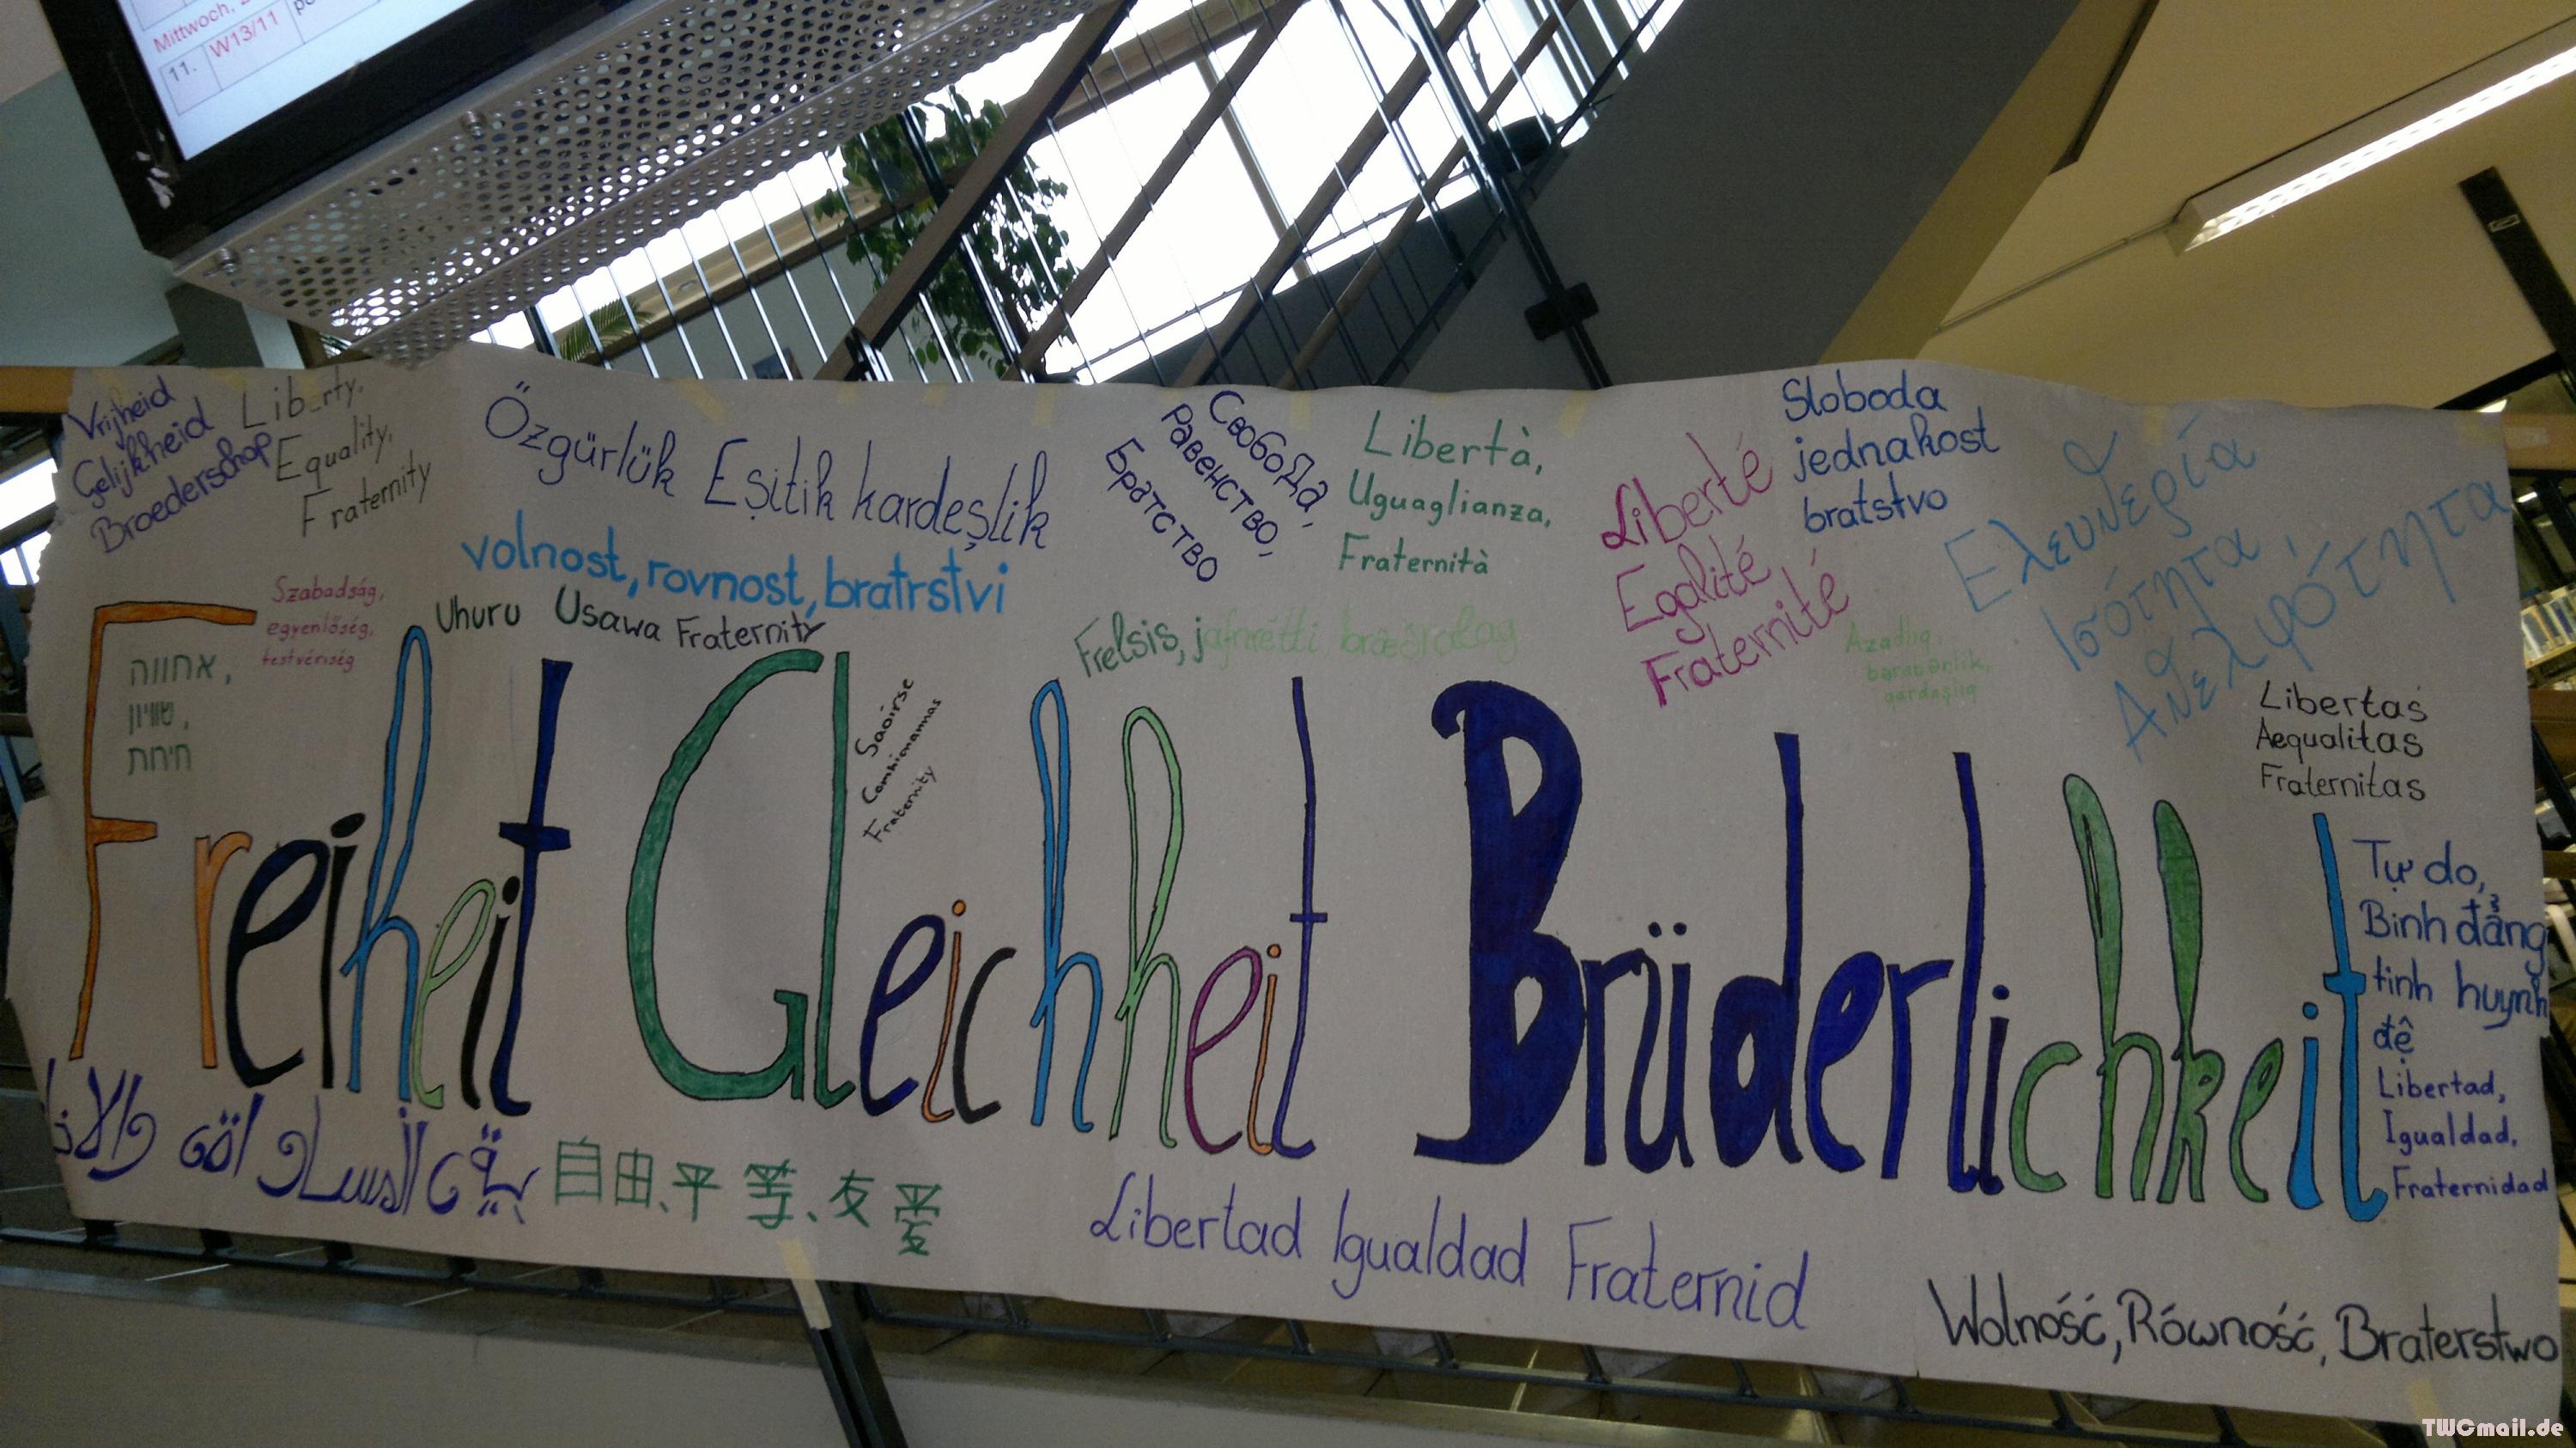 Mittwoch,
11. W13/11
Vrijheid
Gelijkheid
Broederschop
Lib_rty,
Equality,
Fraternity
Özgürlük Eşitik kardeşlik
volnost, rovnost, bratrstvi
Uhuru Usawa Fraternity
Свобода,
Равенство,
Братство
Libertà,
Uguaglianza,
Fraternità
Liberté
Egalité
Fraternité
Sloboda
jednakost
bratstvo
Ισότητα,
Szabadság,
egyenlőség,
testvériség
אחווה,
שוויון,
Frelsis, jafnrétti
Azadlıq,
bərabərlik,
qardaşlıq
Libertas
Aequalitas
Fraternitas
Saoirse
Comhionannas
Fraternity
Freiheit Gleichheit Brüderlichkeit
Tự do,
Binh đẳng
tinh huynh
đệ
Libertad,
Igualdad,
Fraternidad
自由、平等、友爱
Libertad Igualdad Fraternid
Wolność, Równość, Braterstwo
TWCmail.de